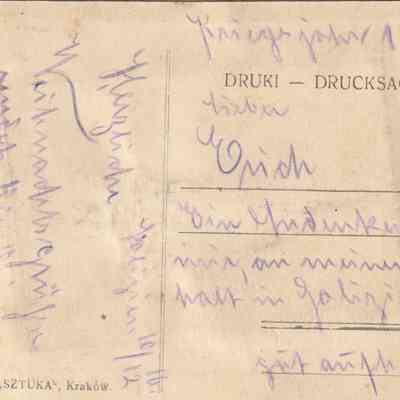 Kriegsjahr 1
DRUKI — DRUCKSA
Lieber
Erich
Ein Andenken
mir, an meinen
halt in Galizi
gut aufh
Herzliche
Weihnachtsgrüße
Galizien 16/12
"SZTUKA", Kraków.